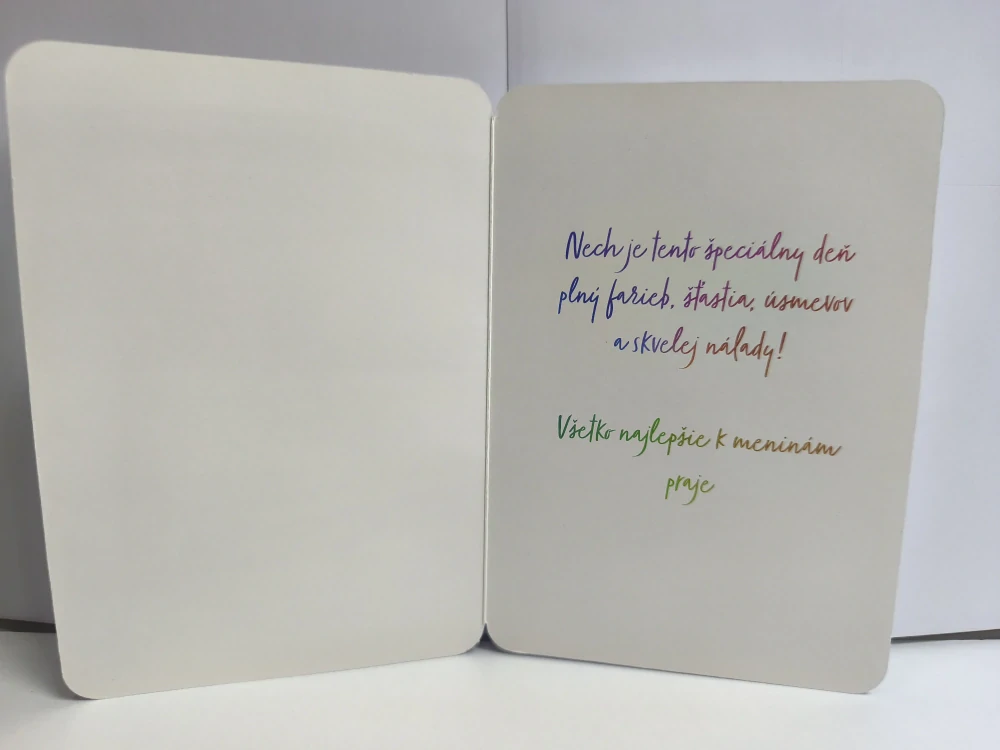 Nech je tento špeciálny deň
plný farieb, šťastia, úsmevov
a skvelej nálady!
Všetko najlepšie k meninám
praje